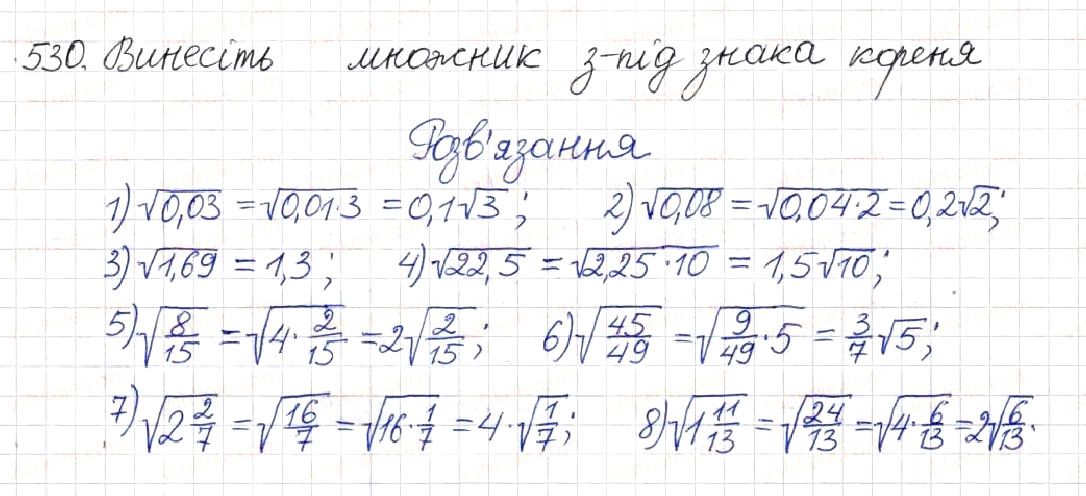 530. Винесіть множник з-під знака кореня
Розв'язання
1) √0,03 = √0,01·3 = 0,1√3; 2) √0,08 = √0,04·2 = 0,2√2;
3) √1,69 = 1,3; 4) √22,5 = √2,25·10 = 1,5√10;
5) √8/15 = √4·2/15 = 2√2/15; 6) √45/49 = √9/49·5 = 3/7√5;
7) √2 2/7 = √16/7 = √16·1/7 = 4·√1/7; 8) √1 11/13 = √24/13 = √4·6/13 = 2√6/13.